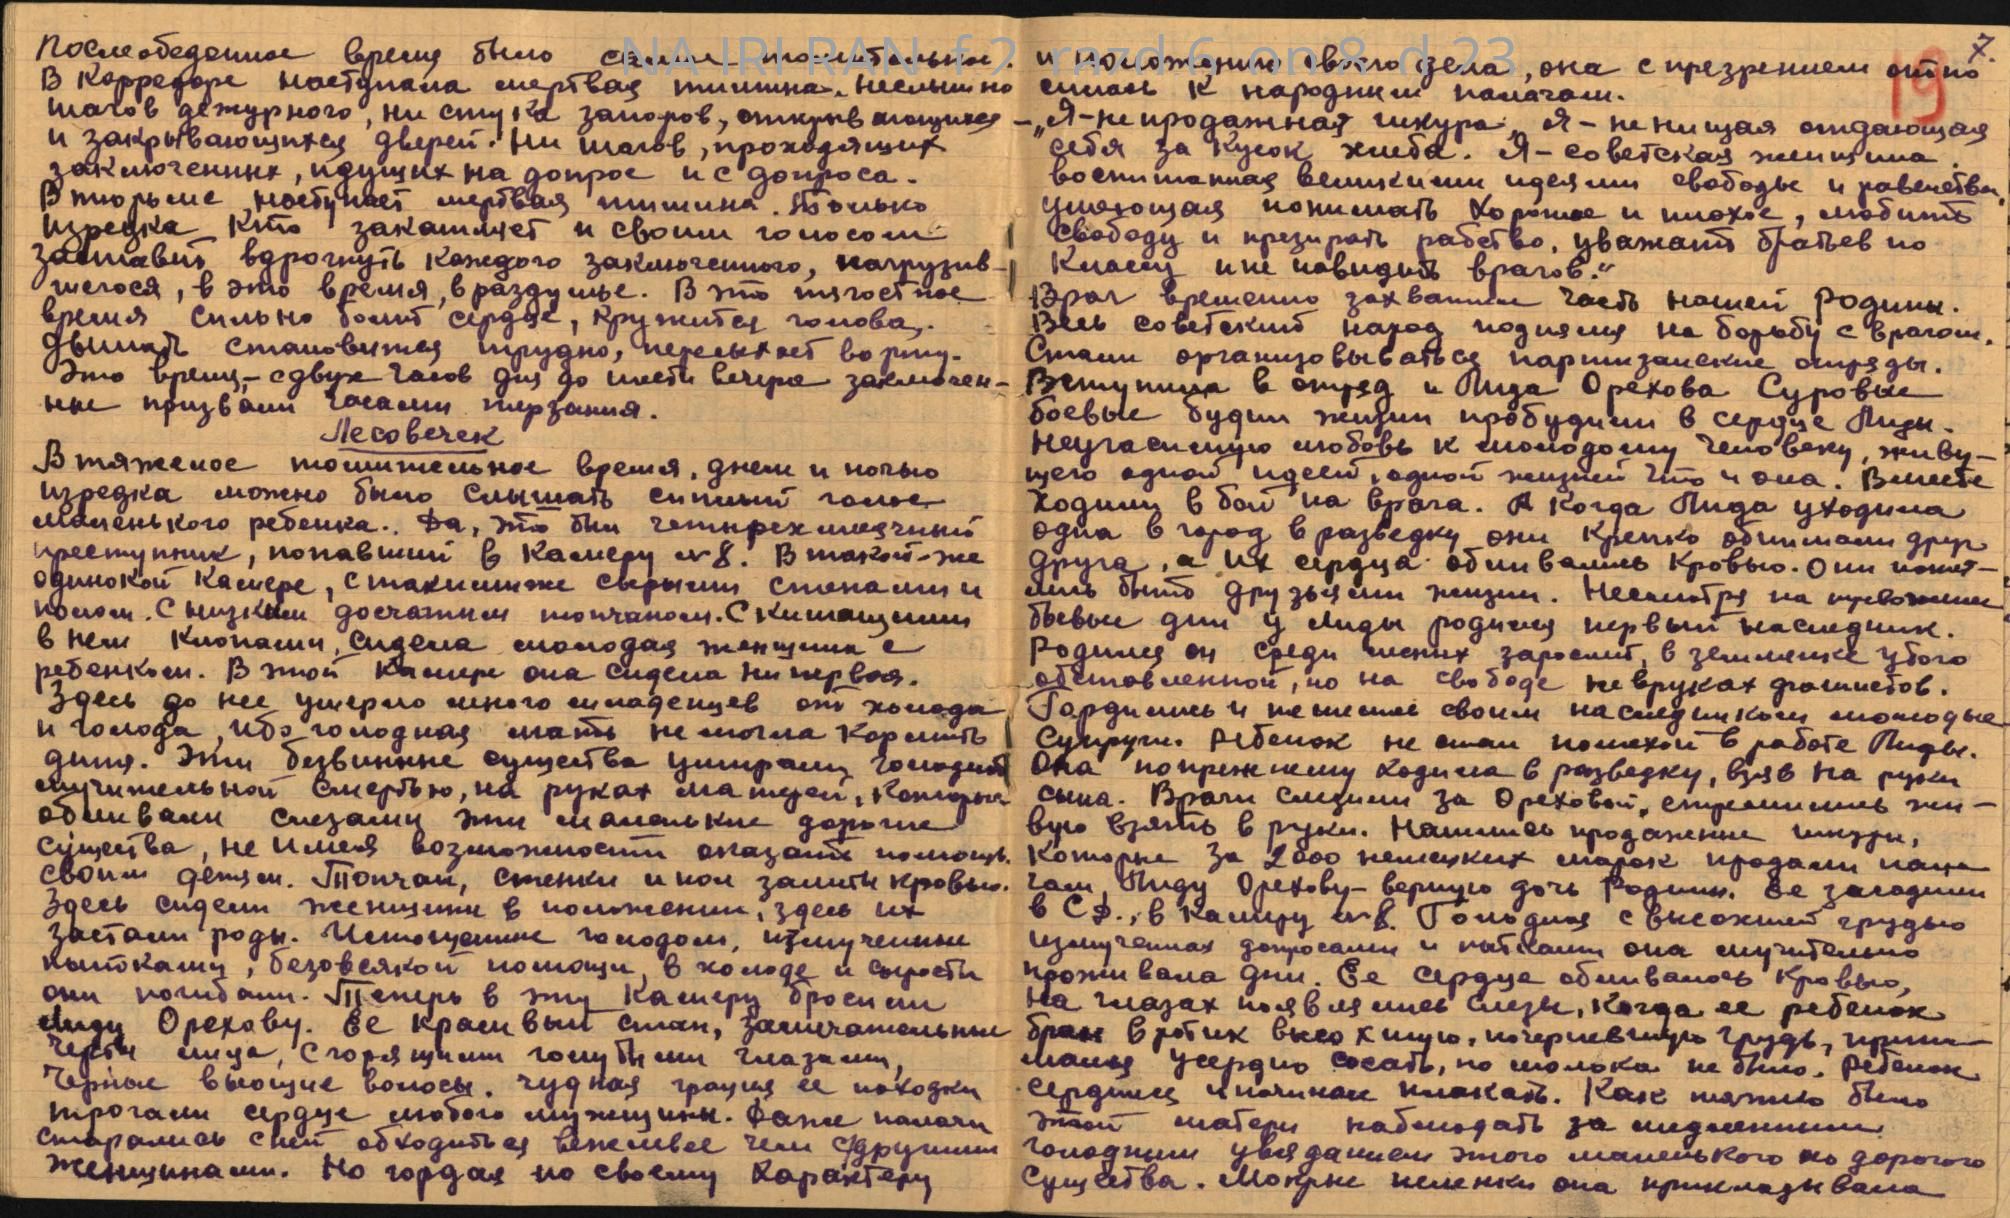 Послеобеденное время было самым томительным.
В Корредоре наступала мертвая тишина. Неслышно
шагов дежурного, ни стука запоров, открывающихся
и закрывающихся дверей. Ни шагов, проходящих
заключенных, идущих на допрос и с допроса.
В тюрьме наступает мертвая тишина. Только
изредка кто закашляет и своим голосом
заставит вдрогнуть каждого заключенного, погрузив-
шегося, в это время, в раздумье. В это тягостное
время сильно болит сердце, кружится голова,
дышать становится трудно, пересыхает во рту.
Это время, – с двух часов дня до шести вечера заключен-
ные призвали часами терзания.
Лесовечек
В тяжелое томительное время, днем и ночью
изредка можно было слышать сиплый голос
маленького ребенка. Да, это был четырехмесячный
преступник, попавший в Камеру №8. В такой-же
одинокой камере, с такими же сырыми стенами и
полом. С низким досчатым топчаном. С кишащими
в нем клопами, сидела молодая женщина с
ребенком. В этой камере она сидела не первая.
Здесь до нее умерло много младенцев от холода
и голода, ибо голодная мать не могла кормить
дитя. Эти безвинные существа умирали голодной
мучительной смертью, на руках матерей, которые
обливали слезами эти маленькие дорогие
существа, не имея возможности оказать помощь
своим детям. Топчан, стенки и пол залиты кровью.
Здесь сидели женщины в положении, здесь их
застали роды. Истощенные голодом, измученные
пытками, безовсякой помощи, в холоде и сырости
они погибали. Теперь в эту камеру бросили
Лиду Орехову. Ее красивый стан, замечательные
черты лица, с горящими голубыми глазами,
Черные вьющие волосы, чудная грация ее походки
трогали сердце любого мужщины. Даже палачи
старались с ней обходиться вежливее чем с другими
женщинами. Но гордая по своему характеру
7.
19
и положению своего дела, она с презрением отно
силась к народным палачам.
– „Я – не продажная шкура, Я – не нищая отдающая
себя за кусок хлеба. Я – советская женщина.
воспитанная великими идеями свободы и равенства,
умеющая понимать хорошее и плохое, любить
свободу и презирать рабство, уважать братьев по
классу и не навидить врагов."
Враг временно захватил часть нашей Родины.
Весь советский народ поднялся на борьбу с врагом.
Стали организовываться партизанские отряды.
Вступила в отряд и Лида Орехова Суровые
боевые будни жизни пробудили в сердце Лиды
неугасимую любовь к молодому человеку, живу-
щего одной идеей, одной жизней что и она. Вместе
ходили в бой на врага. А когда Лида уходила
одна в город в разведку они крепко обнимали друг
друга, а их сердца обливались кровью. Они
быть друзьями жизни. Несмотря на
боевые дни у Лиды родился первый наследник.
Родился он среди лесных зарослей, в землянке убого
обставленной, но на свободе не в руках фашистов.
Гордились и тешились своим наследником молодые
супруги. Ребенок не стал помехой в работе Лиды.
Она попрежнему ходила в разведку, взяв на руки
сына. Враги следили за Ореховой, стремились жи-
вую взять в руки. Нашлись продажные шкуры,
которые за 2000 немецких марок продали пала
чам Лиду Орехову – верную дочь Родины. Ее засадили
в С.Д., в камеру №8. Голодная с высохшей грудью
измученная допросами и пытками она мучительно
проживала дни. Ее сердце обливалось кровью,
На глазах появлялись слезы, когда ее ребенок
брал в ротик высохшую, почерневшую грудь, прини-
мался усердно сосать, но молока не было. Ребенок
сердился и начинал плакать. Как тяжело было
этой матери наблюдать за медленным
голодным увяданием этого маленького но дорогого
существа. Мокрые пеленки она прикладывала
NA IRI RAN f.2 razd.6 op.8 d.23